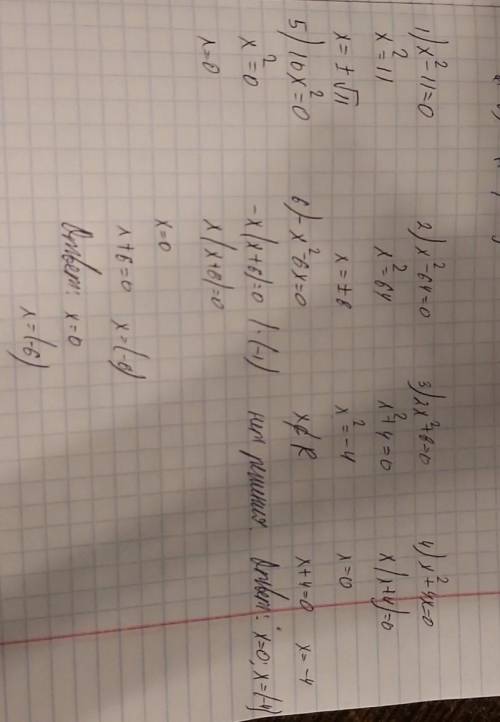 1) x² - 11 = 0
x² = 11
x = ± √11
2) x² - 64 = 0
x² = 64
x = ± 8
3) 2x² + 8 = 0
x² + 4 = 0
x² = -4
x ∉ R
нет решения.
4) x² + 4x = 0
x(x+4) = 0
x = 0
x + 4 = 0 x = -4
Ответ: x = 0; x = (-4)
5) 16x² = 0
x² = 0
x = 0
6) -x² - 6x = 0
-x(x+6) = 0 | : (-1)
x(x+6) = 0
x = 0
x + 6 = 0 x = (-6)
Ответ: x = 0
x = (-6)